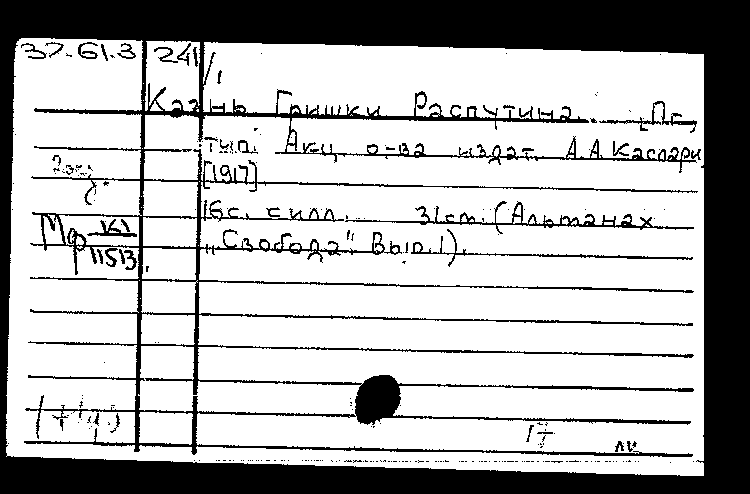 37-61.3 241/1
Казнь Гришки Распутина. [Пг.,
тип. Акц. о-ва издат. А.А.Каспари,
[1917].
16с. с илл. 31см. (Альманах
„Свобода". Вып.1).
Мф 161/11513
17 ли